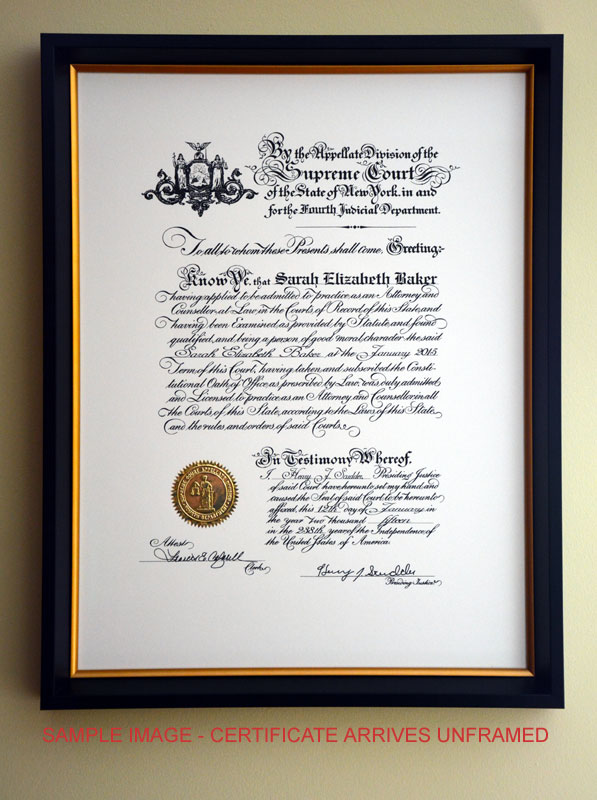 By the Appellate Division of the
Supreme Court
of the State of New York, in and
for the Fourth Judicial Department.
To all to whom these Presents shall come, Greeting:
Know Ye, that Sarah Elizabeth Baker
having applied to be admitted to practice as an Attorney and
Counsellor-at-Law in the Courts of Record of this State, and
having been Examined as provided by Statute, and found
qualified, and being a person of good moral character, the said
Sarah Elizabeth Baker at the January 2015
Term of this Court, having taken and subscribed the Consti-
tutional Oath of Office as prescribed by Law, was duly admitted
and Licensed to practice as an Attorney and Counsellor in all
the Courts of this State, according to the Laws of this State
and the rules and orders of said Courts.
In Testimony Whereof,
I, Henry J. Scudder, Presiding Justice
of said Court have hereunto set my hand, and
caused the Seal of said Court to be hereunto
affixed, this 12th day of January in
the year Two Thousand fifteen
in the 238th year of the Independence of
the United States of America.
Attest
Clerk
Henry J Scudder
Presiding Justice
SAMPLE IMAGE - CERTIFICATE ARRIVES UNFRAMED